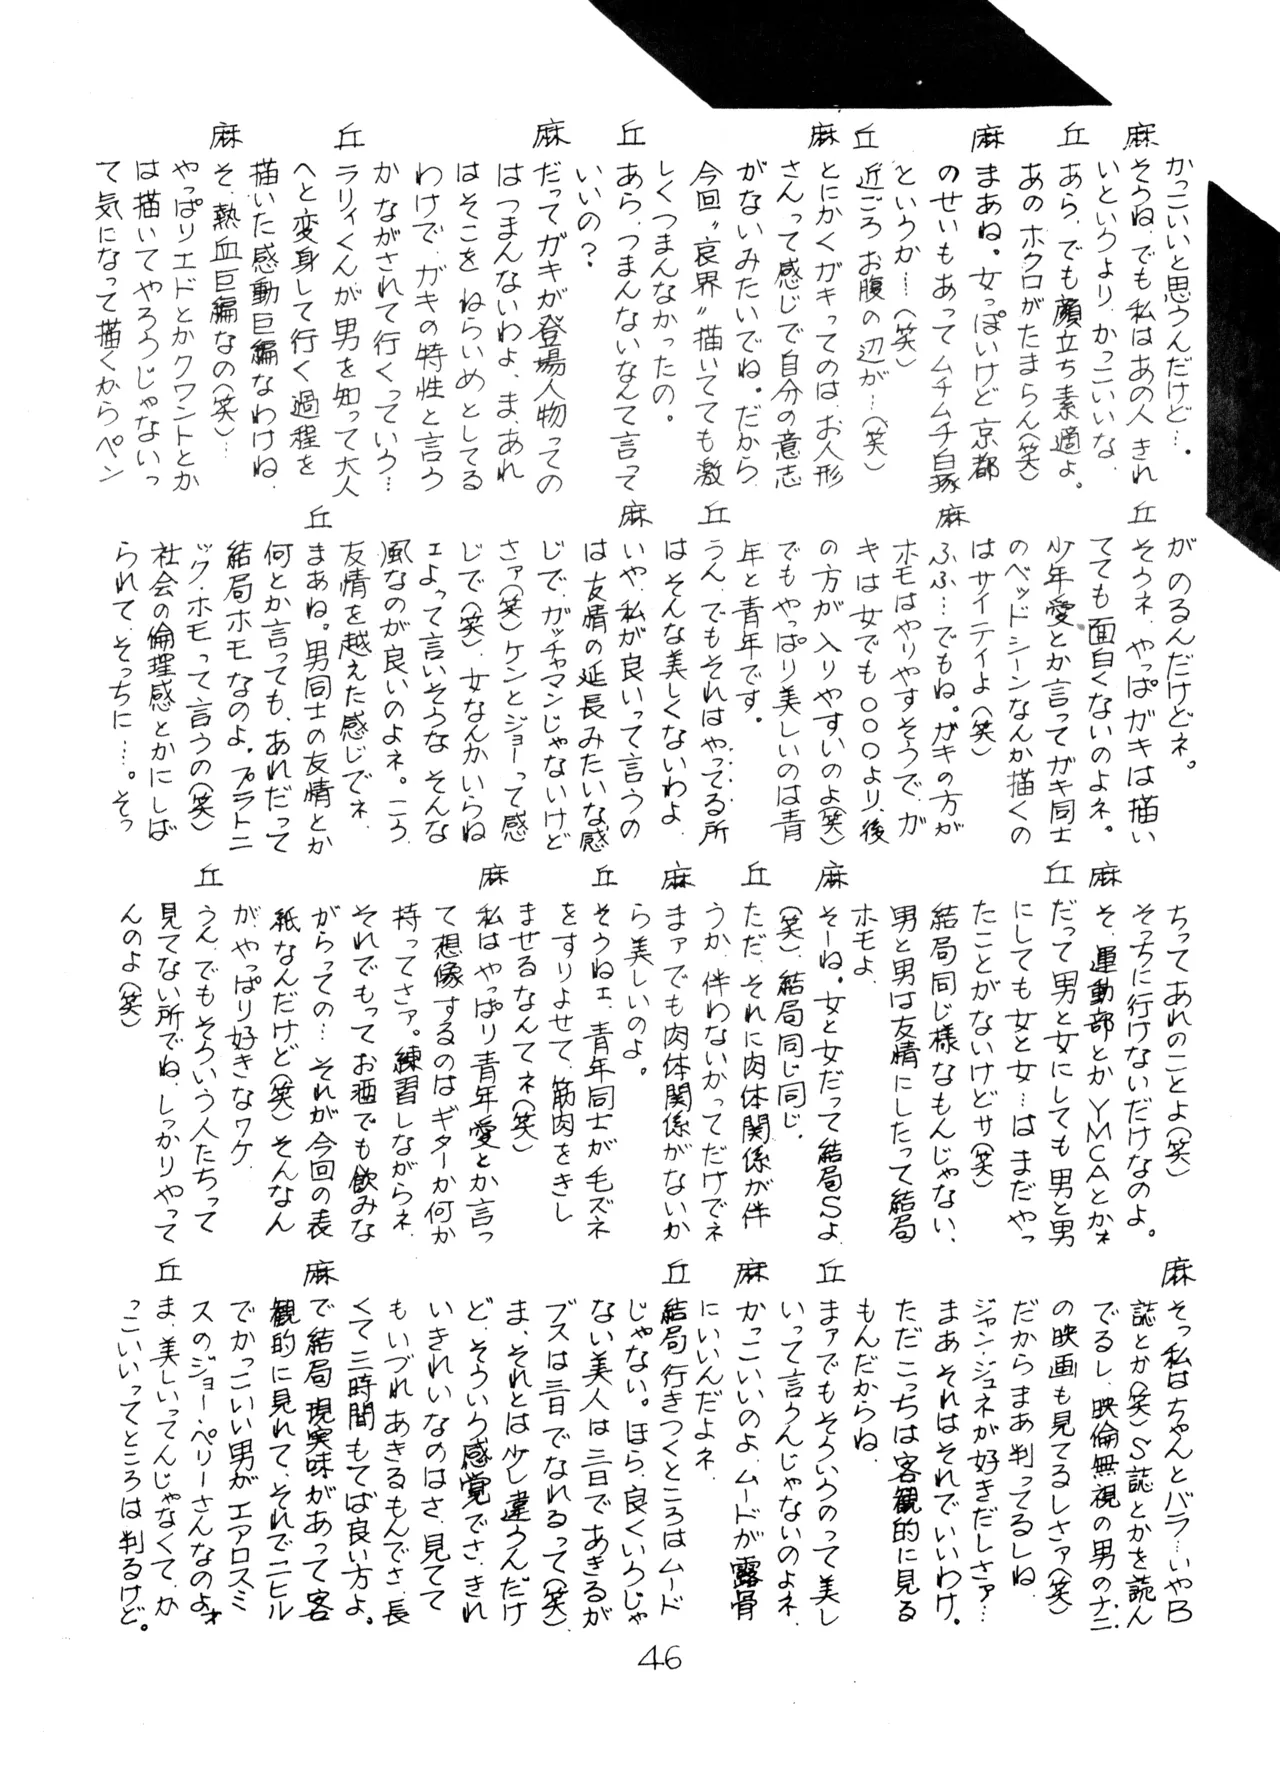 かっこいいと思うんだけど…。
麻 そうね、でも私はあの人きれ
いというより、かっこいいな、
丘 あら、でも顔立ち素適よ。
あのホクロがたまらん(笑)
麻 まあね。女っぽいけど京都
のせいもあってムチムチ白豚
というか…(笑)
丘 近ごろお腹の辺が…(笑)
麻 とにかくガキってのはお人形
さんって感じで自分の意志
がないみたいでね。だから
今回〝哀界〟描いてても激
しくつまんなかったの。
丘 あら、つまんないなんて言って
いいの?
麻 だってガキが登場人物っての
はつまんないわよ、ま、あれ
はそこをねらいめとしてる
わけで、ガキの特性と言う
かながされて行くっていう…
麻 そ、熱血巨編なの(笑)…
やっぱりエドとかクワントとか
は描いてやろうじゃないっ
て気になって描くからペン
がのるんだけどネ。
丘 そうネ、やっぱガキは描い
てても面白くないのよネ。
でもやっぱり美しいのは青
年と青年です。
丘 うん、でもそれはやってる所
はそんな美しくないわよ、
麻 いや、私が良いって言うの
は友情の延長みたいな感
じで、ガッチャマンじゃないけど
さァ(笑)ケンとジョーって感
じで(笑)、女なんかいらね
ェよって言いそうなそんな
風なのが良いのよネ。こう
友情を越えた感じでネ、
丘 まあね。男同士の友情とか
何とか言っても、あれだって
結局ホモなのよ。プラトニ
ック・ホモって言うの(笑)
社会の倫理感とかにしば
られて、そっちに…。そっ
ちってあれのことよ(笑)
そっちに行けないだけなのよ。
麻 そ、運動部とかYMCAとかネ
丘 だって男と女にしても男と男
にしても女と女…はまだやっ
たことがないけどサ(笑)
結局同じ様なもんじゃない、
男と男は友情にしたって結局
ホモよ、
麻 そーね。女と女だって結局Sよ
(笑)、結局同じ同じ、
丘 ただ、それに肉体関係が伴
うか、伴わないかってだけでネ
麻 まァでも肉体関係がないか
ら美しいのよ。
丘 そうねェ、青年同士が毛ズネ
をすりよせて、筋肉をきし
ませるなんてネ(笑)
麻 私はやっぱり青年愛とか言っ
て想像するのはギターか何か
持ってさァ。練習しながらネ、
それでもってお酒でも飲みな
がらっての…それが今回の表
紙なんだけど(笑)そんなん
が、やっぱり好きなワケ、
丘 うん、でもそういう人たちって
見てない所でね、しっかりやって
んのよ(笑)
麻 そっ私はちゃんとバラ…いやB
誌とか(笑)S誌とかを読ん
でるし、映倫無視の男のナニ
の映画も見てるしさァ(笑)
だからまあ判ってるしね、
ジャン・ジュネが好きだしさァ…
まあそれはそれでいいわけ。
ただこっちは客観的に見る
もんだからね、
丘 まァでもそういうのって美し
いって言うんじゃないのよネ、
麻 かっこいいのよ、ムードが露骨
にいいんだよネ、
丘 結局行きつくところはムード
じゃない。ほら、良くいうじゃ
ない美人は三日であきるが
ブスは三日でなれるって(笑)
ま、それとは少し違うんだけ
ど、そういう感覚でさ、きれ
いきれいなのはさ、見てて
もいづれあきるもんでさ、長
くて三時間もてば良い方よ。
麻 で結局現実味があって客
観的に見れて、それでニヒル
でかっこいい男がエアロスミ
スのジョー・ペリーさんなのよォ
丘 ま、美しいってんじゃなくて、か
っこいいってところは判るけど。
46